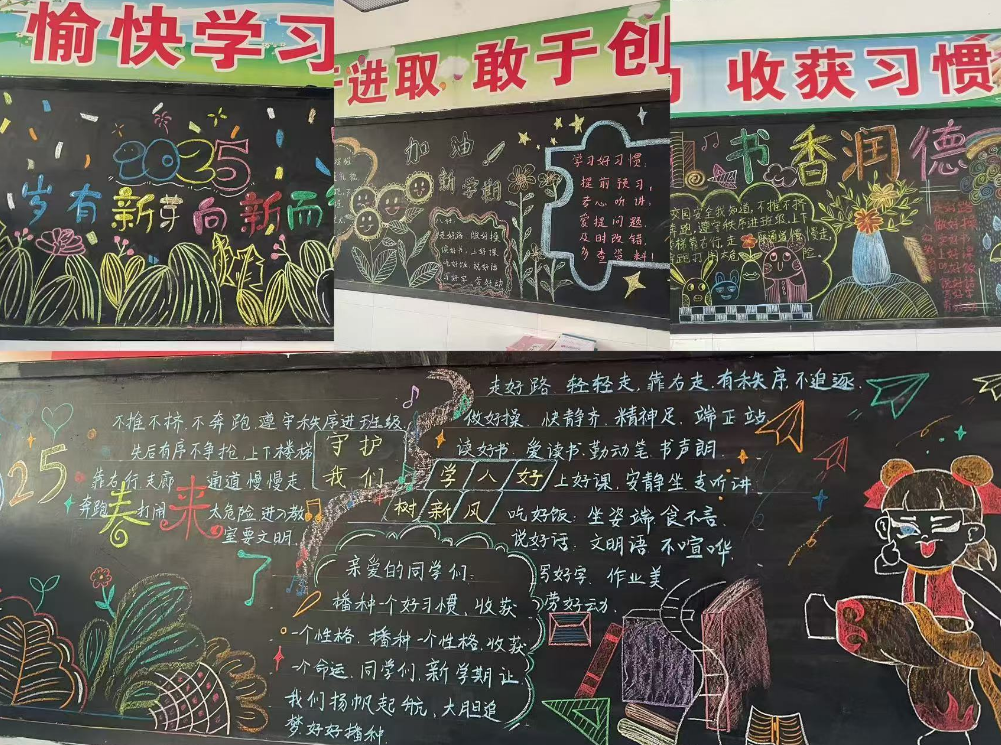 愉快学习
2025
岁有新芽向新而
进取 敢于创
加油
新学期
学习好习惯:
提前预习,
专心听讲,
爱提问题,
及时改错,
收获习惯
书香润德
校园安全我知道,不推不挤
不奔跑,遵守秩序进班级,上下
楼梯靠右行,走廊通道慢慢走,
25
春来
不推不挤,不奔跑,遵守秩序进班级,
先后有序不争抢,上下楼梯
靠右行,走廊通道慢慢走
奔跑打闹太危险,进入教
室要文明。
守护
我们
学人好
树新风
走好路 轻轻走,靠右走,有秩序,不追逐
做好操 快静齐,精神足,端正站
读好书 爱读书,勤动笔,书声朗
上好课,安静坐,专听讲
吃好饭:坐姿端,食不言
说好话,文明语,不喧哗
写好字,作业美
劳好动
亲爱的同学们:
播种一个好习惯,收获
一个性格,播种一个性格,收获
一个命运,同学们,新学期让
我们扬帆起航,大胆追
梦,好好播种